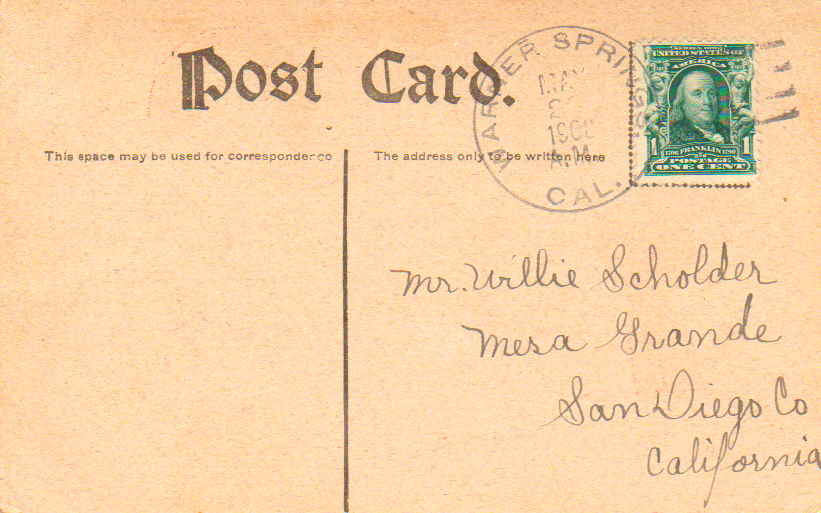 Post Card.
WARNER SPRINGS,
MAY
A.M.
CAL.
UNITED STATES OF
AMERICA
1 1
1706 FRANKLIN 1790
POSTAGE
ONE CENT
This space may be used for correspondence
The address only to be written here
Mr. Willie Scholder
Mesa Grande
San Diego Co
California